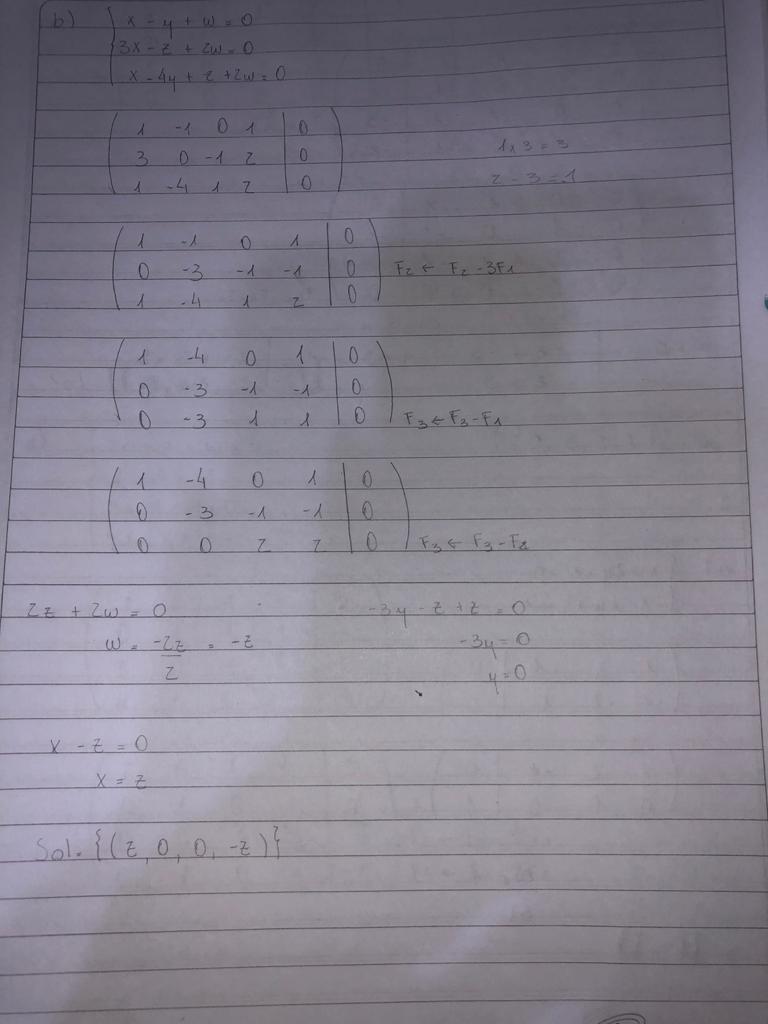 b) { x - y + w = 0
3x - z + 2w = 0
x - 4y + z + 2w = 0
1 -1 0 1 | 0
3 0 -1 2 | 0
1x3 = 3
1 -4 1 2 | 0
2 - 3 = -1
1 -1 0 1 | 0
0 -3 -1 -1 | 0 F2 ← F2 - 3F1
1 -4 1 2 | 0
1 -4 0 1 | 0
0 -3 -1 -1 | 0
0 -3 1 1 | 0 F3 ← F3 - F1
1 -4 0 1 | 0
0 -3 -1 -1 | 0
0 0 2 2 | 0 F3 ← F3 - F2
2z + 2w = 0
w = -2z/2 = -z
-3y - z + z = 0
-3y = 0
y = 0
x - z = 0
x = z
Sol. {(z, 0, 0, -z)}